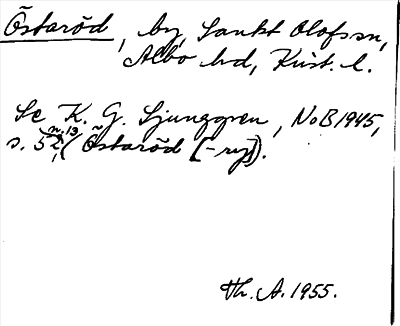 Östaröd, by, Sankt Olofs sn,
Albo hd, Krist. l.
Se K. G. Ljunggren, NoB 1945,
s. 52 n. 13, (Östaröd [-ry]).
Th. A. 1955.